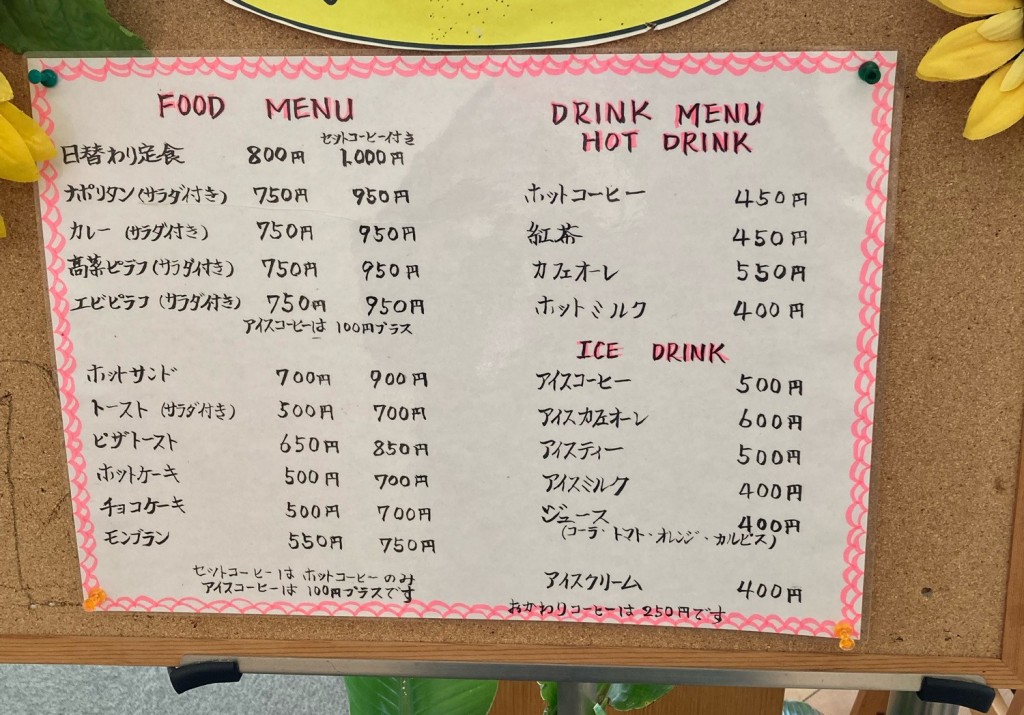 FOOD MENU
セットコーヒー付き
日替わり定食 800円 1,000円
ナポリタン(サラダ付き) 750円 950円
カレー (サラダ付き) 750円 950円
高菜ピラフ(サラダ付き) 750円 950円
エビピラフ(サラダ付き) 750円 950円
アイスコーヒーは 100円プラス
ホットサンド 700円 900円
トースト (サラダ付き) 500円 700円
ピザトースト 650円 850円
ホットケーキ 500円 700円
チョコケーキ 500円 700円
モンブラン 550円 750円
セットコーヒーは ホットコーヒーのみ
アイスコーヒーは 100円プラスです
DRINK MENU
HOT DRINK
ホットコーヒー 450円
紅茶 450円
カフェオーレ 550円
ホットミルク 400円
ICE DRINK
アイスコーヒー 500円
アイスカフェオーレ 600円
アイスティー 500円
アイスミルク 400円
ジュース 400円
(コーラ・トマト・オレンジ・カルピス)
アイスクリーム 400円
おかわりコーヒーは 250円です